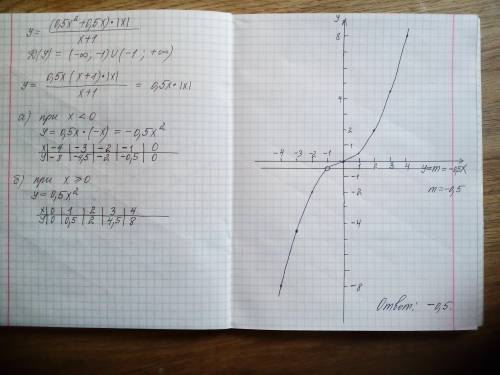 y = (0,5x² + 0,5x)·|x| / x+1
D(y) = (-∞; -1) ∪ (-1; +∞)
y = 0,5x (x+1)·|x| / x+1 = 0,5x·|x|
а) при x < 0
y = 0,5x·(-x) = -0,5x²
x | -4 | -3 | -2 | -1 | 0
y | -8 | -4,5 | -2 | -0,5 | 0
б) при x ≥ 0
y = 0,5x²
x | 0 | 1 | 2 | 3 | 4
y | 0 | 0,5 | 2 | 4,5 | 8
y
8
4
2
1
-4 -3 -2 -1 0 1 2 3 4
-1
-2
-4
-8
y=m=-0,5x
m=-0,5
Ответ: -0,5.